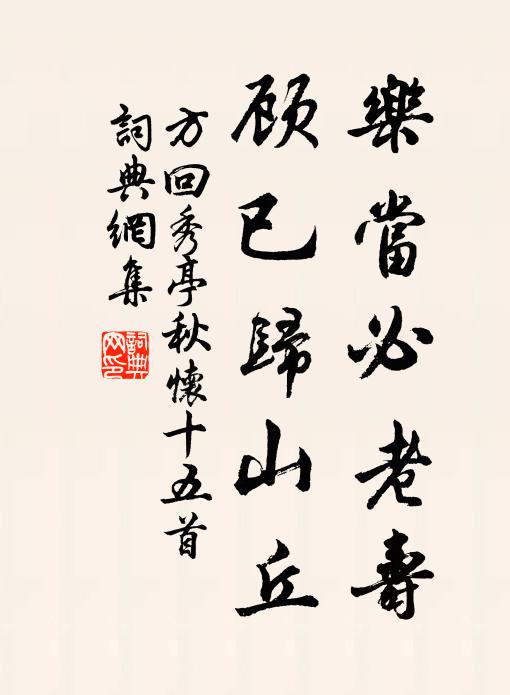 樂當必老壽
顧已歸山丘
方回秀亭秋懷十五首
詞典網集
詞典網印